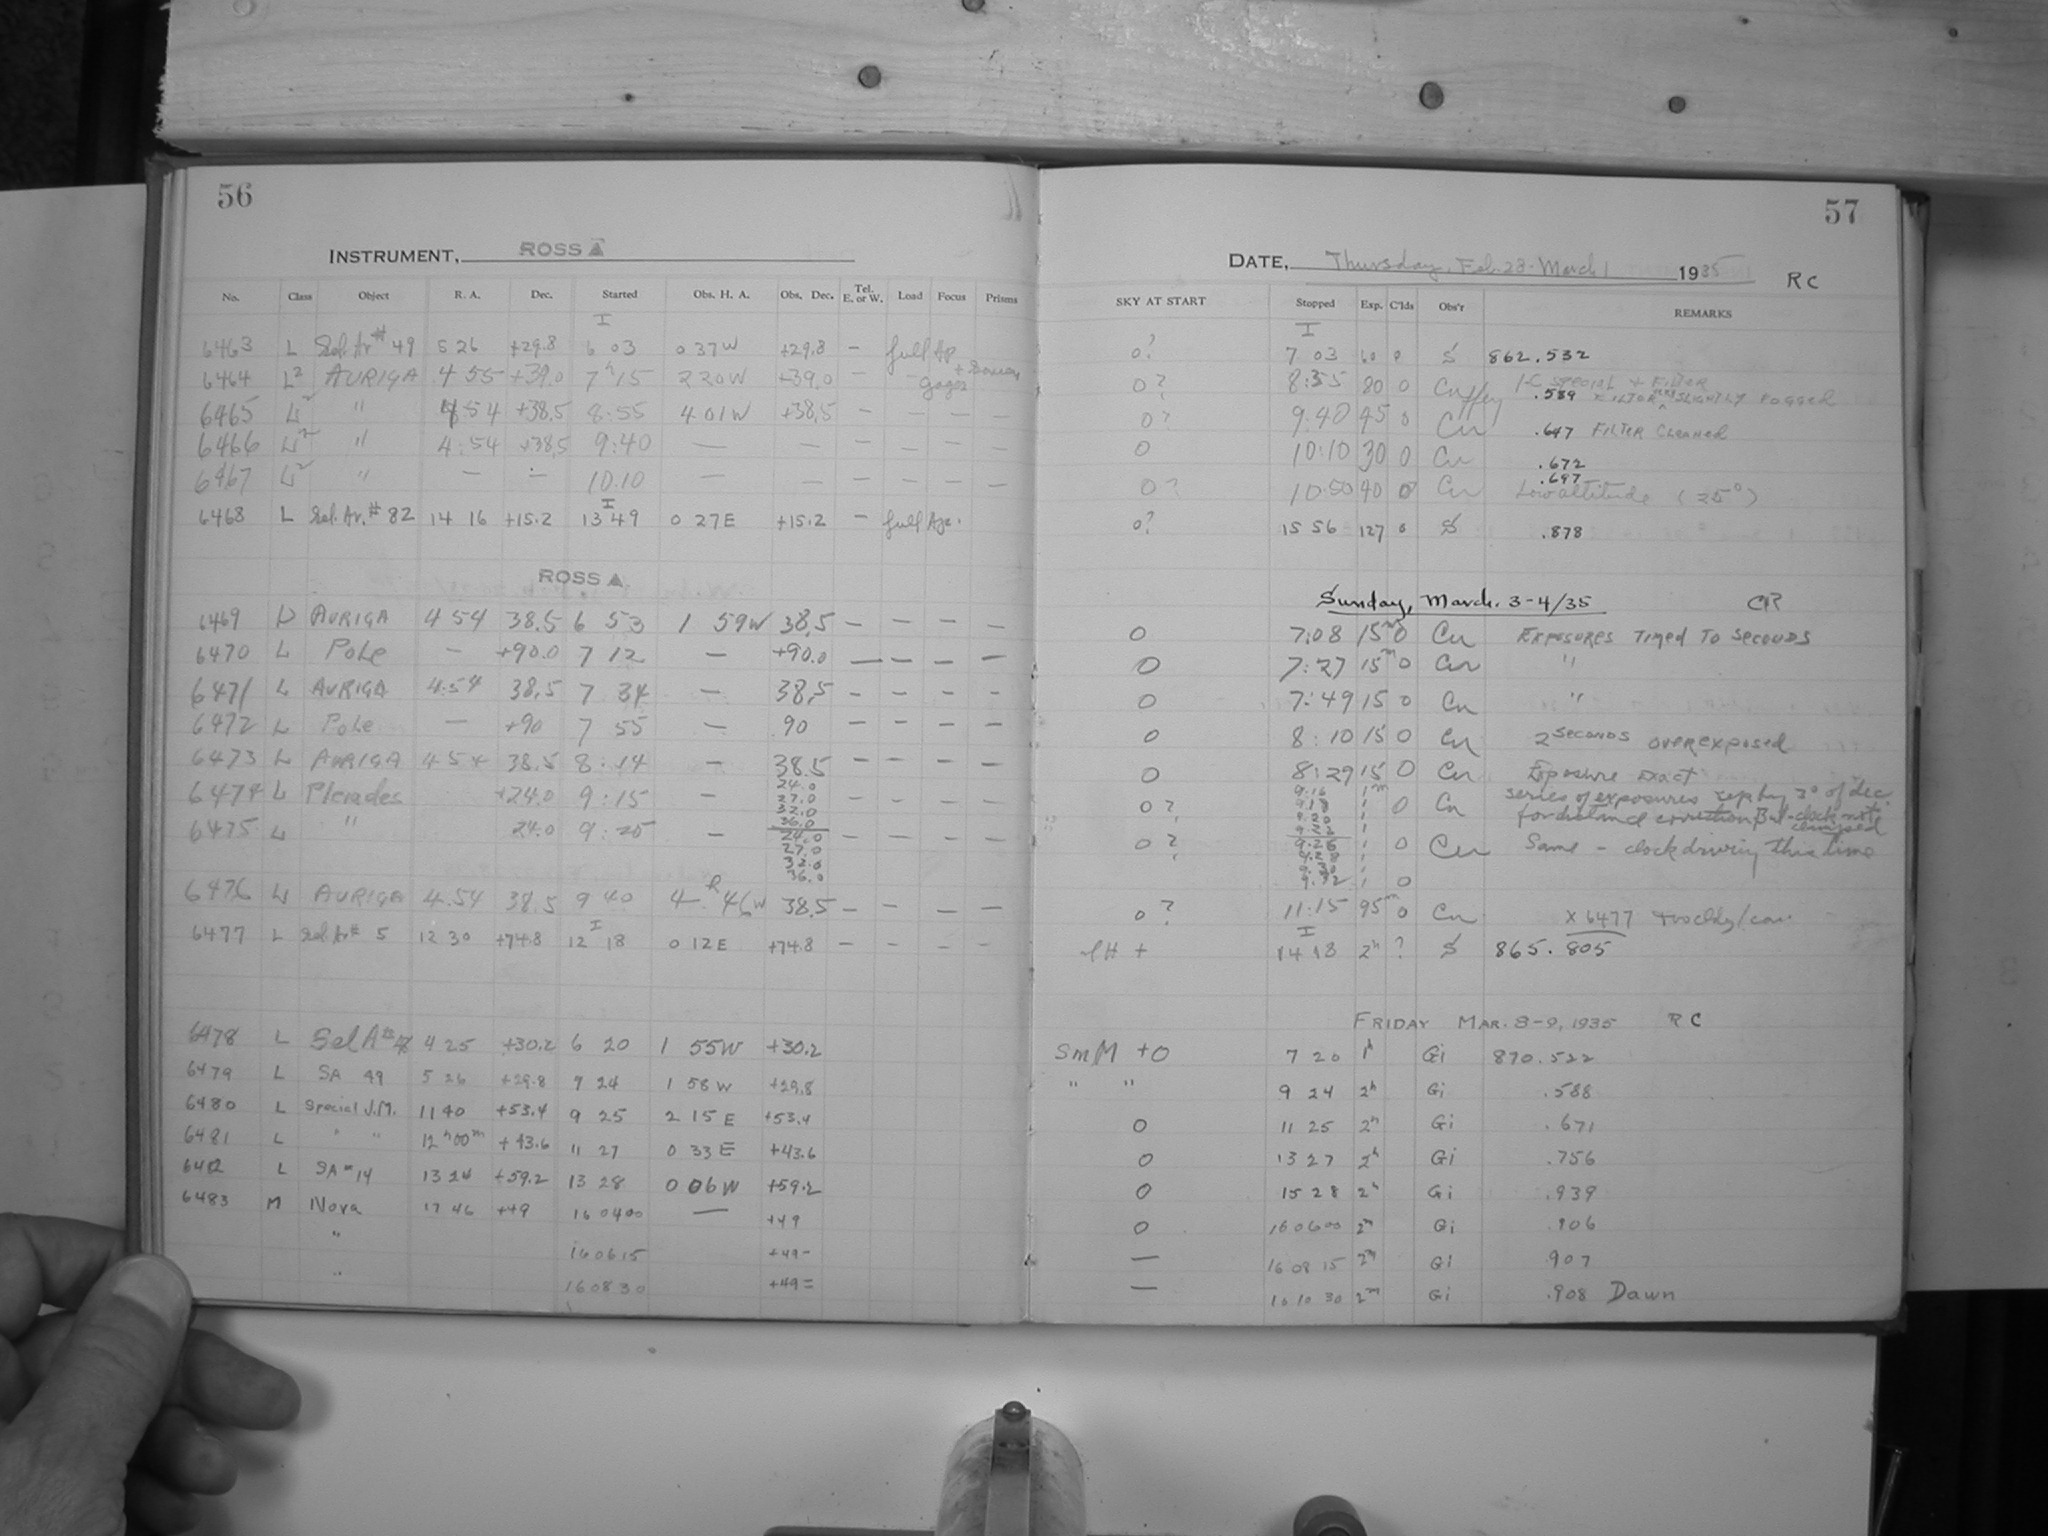 56
INSTRUMENT, ROSS A
No. Class Object R. A. Dec. Started Obs. H. A. Obs. Dec. Tel. E. or W. Load Focus Prisms
I
6463 L Sel. Ar # 49 5 26 +29.8 6 03 0 37 W +29.8 — full Ap
6464 L² AURIGA 4 55 +39.0 7 h 15 2 20 W +39.0 —
6465 L² " 4 54 +38.5 8:55 4 01 W +38.5 — — — —
6466 L² " 4:54 +38.5 9:40 — — — — — —
6467 L² " — — 10.10 — — — — — —
I
6468 L Sel. Ar. # 82 14 16 +15.2 13 49 0 27 E +15.2 — full Ape.
ROSS A
6469 L AURIGA 4 54 38.5 6 53 1 59 W 38.5 — — — —
6470 L Pole — +90.0 7 12 — +90.0 — — — —
6471 L AURIGA 4.54 38.5 7 34 — 38.5 — — — —
6472 L Pole — +90 7 55 — 90 — — — —
6473 L AURIGA 4 54 38.5 8:14 — 38.5 — — — —
6474 L Pleiades +24.0 9:15 — 24.0
27.0
32.0
36.0
6475 L " 24.0 9:25 — 24.0
27.0
32.0
36.0
6476 L AURIGA 4.54 38.5 9 40 4 h 46 W 38.5 — — — —
I
6477 L Sel. Ar # 5 12 30 +74.8 12 18 0 12 E +74.8 — — — —
6478 L Sel A # 4 25 +30.2 6 20 1 55 W +30.2
6479 L SA 49 5 26 +29.8 7 24 1 58 W +29.8
6480 L Special J.M. 11 40 +53.4 9 25 2 15 E +53.4
6481 L " " 12 h 00 m +43.6 11 27 0 33 E +43.6
6482 L SA # 14 13 24 +59.2 13 28 0 06 W +59.2
6483 M Nova 17 46 +49 16 04 00 — +49
" 16 06 15 +49 -
" 16 08 30 +49 =
57
DATE, Thursday, Feb. 28 - March 1 1935 RC
SKY AT START Stopped Exp. C'lds Obs'r REMARKS
I
0? 7 03 60 0 S 862.532
0? 8:35 80 0 Cuffey I-C SPECIAL + FILTER
.589 FILTER WAS SLIGHTLY FOGGED
0? 9:40 45 0 Cu .647 FILTER CLEANED
0 10:10 30 0 Cu .672
.697
0? 10.50 40 0 Cu Low altitude (25°)
0? 15 56 127 0 S .878
Sunday, March. 3-4/35 CR
0 7:08 15 m 0 Cu EXPOSURES TIMED TO SECONDS
0 7:27 15 m 0 Cu "
0 7:49 15 0 Cu "
0 8:10 15 0 Cu 2 seconds overexposed
0 8:29 15 0 Cu Exposure exact
0? 9:16 1 m 0 Cu series of exposures sep by 3° of dec.
9.18 for distance correction But - clock not
9.20
9.22
0? 9.26 1 0 Cu Same - clock driving this time
9.28
9.30
9.32 1 0
0? 11:15 95 m 0 Cu X 6477
I
14 18 2 h ? S 865.805
FRIDAY MAR. 8-9, 1935 RC
Sm M +0 7 20 1 h Gi 870.522
" " 9 24 2 h Gi .588
0 11 25 2 h Gi .671
0 13 27 2 h Gi .756
0 15 28 2 h Gi .939
0 16 06 00 2 m Gi .906
— 16 08 15 2 m Gi .907
— 16 10 30 2 m Gi .908 Dawn